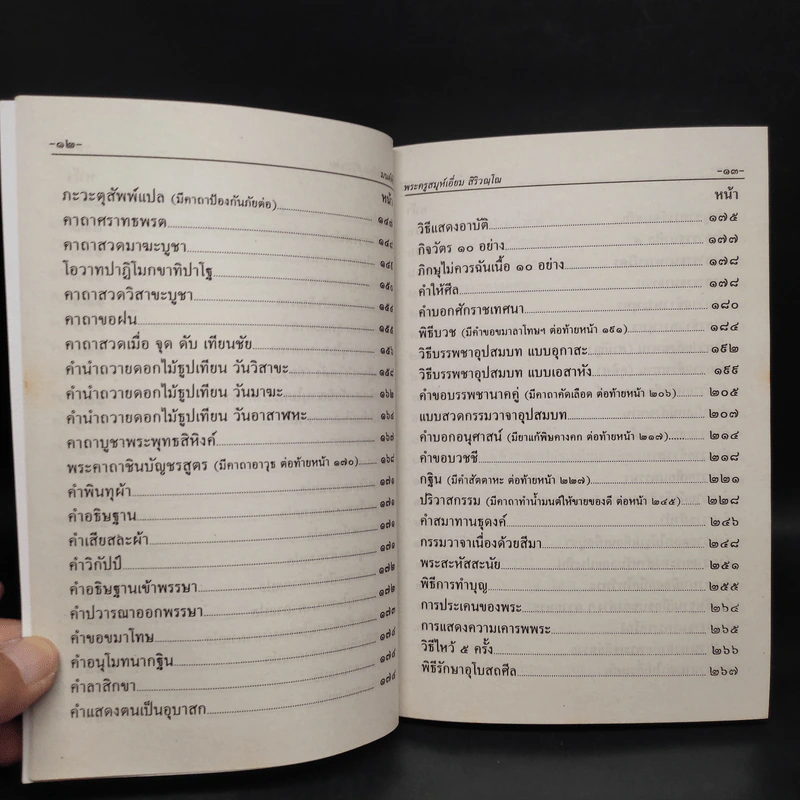 -๑๒-
หน้า
ภะวะตุสัพพ์แปล (มีคาถาป้องกันภัยต่อ)
คาถาศราทธพรต
คาถาสวดมาฆะบูชา
โอวาทปาฏิโมกขาทิปาโฐ
คาถาสวดวิสาขะบูชา
คาถาขอฝน
คาถาสวดเมื่อ จุด ดับ เทียนชัย
คำนำถวายดอกไม้ธูปเทียน วันวิสาขะ
คำนำถวายดอกไม้ธูปเทียน วันมาฆะ
คำนำถวายดอกไม้ธูปเทียน วันอาสาฬหะ
คาถาบูชาพระพุทธสิหิงค์
พระคาถาชินบัญชรสูตร (มีคาถาอาวุธ ต่อท้ายหน้า ๑๗๐)
คำพินทุผ้า ๑๗๑
คำอธิษฐาน ๑๗๑
คำเสียสละผ้า ๑๗๑
คำวิกัปป์ ๑๗๒
คำอธิษฐานเข้าพรรษา ๑๗๒
คำปวารณาออกพรรษา ๑๗๓
คำขอขมาโทษ ๑๗๔
คำอนุโมทนากฐิน ๑๗๔
คำลาสิกขา ๑๗๔
คำแสดงตนเป็นอุบาสก ๑๗๔
พระครูสมุห์เอี่ยม สิริวณฺโณ -๑๓-
หน้า
วิธีแสดงอาบัติ ๑๗๕
กิจวัตร ๑๐ อย่าง ๑๗๗
ภิกษุไม่ควรฉันเนื้อ ๑๐ อย่าง ๑๗๘
คำให้ศีล ๑๗๘
คำบอกศักราชเทศนา ๑๘๐
พิธีบวช (มีคำขอขมาลาโทษฯ ต่อท้ายหน้า ๑๙๑) ๑๘๔
วิธีบรรพชาอุปสมบท แบบอุกาสะ ๑๙๒
วิธีบรรพชาอุปสมบท แบบเอสาหัง ๑๙๙
คำขอบรรพชานาคคู่ (มีคาถาคัดเลือด ต่อท้ายหน้า ๒๐๖) ๒๐๕
แบบสวดกรรมวาจาอุปสมบท ๒๐๗
คำบอกอนุศาสน์ (มียาแก้พิษคางคก ต่อท้ายหน้า ๒๑๗) ๒๑๔
คำขอบวชชี ๒๑๘
กฐิน (มีคำสัตตาหะ ต่อท้ายหน้า ๒๒๗) ๒๒๑
ปริวาสกรรม (มีคาถาทำน้ำมนต์ให้ขายของดี ต่อหน้า ๒๔๕) ๒๒๘
คำสมาทานธุดงค์ ๒๔๖
กรรมวาจาเนื่องด้วยสีมา ๒๔๘
พระสะหัสสะนัย ๒๕๑
พิธีการทำบุญ ๒๕๕
การประเคนของพระ ๒๖๔
การแสดงความเคารพพระ ๒๖๕
วิธีไหว้ ๕ ครั้ง ๒๖๖
พิธีรักษาอุโบสถศีล ๒๖๗